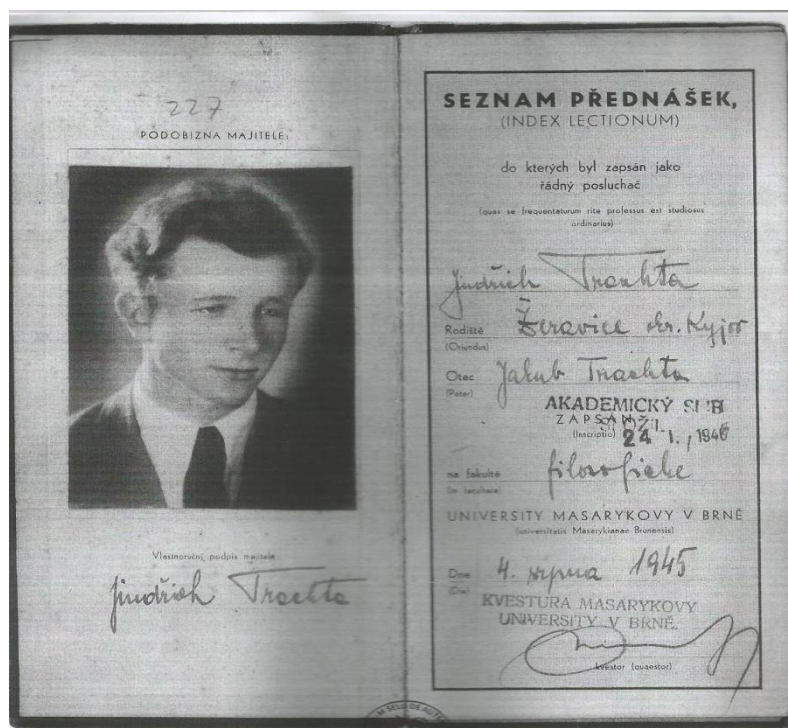 227
PODOBIZNA MAJITELE:
Vlastnoruční podpis majitele
Jindřich Trachta
SEZNAM PŘEDNÁŠEK,
(INDEX LECTIONUM)
do kterých byl zapsán jako
řádný posluchač
(quas se frequentaturum rite professus est studiosus
ordinarius)
Jindřich Trachta
Rodiště Žeravice okr. Kyjov
(Oriundus)
Otec Jakub Trachta
(Pater)
AKADEMICKÝ SLIB
ZAPSÁN SLOŽIL
(Inscriptio) 24 1., 1946
na fakultě filosofické
(in facultate)
UNIVERSITY MASARYKOVY V BRNĚ
(universitatis Masarykianae Brunensis)
Dne 4. srpna 1945
(Die)
KVESTURA MASARYKOVY
UNIVERSITY V BRNĚ.
kvestor (quaestor)